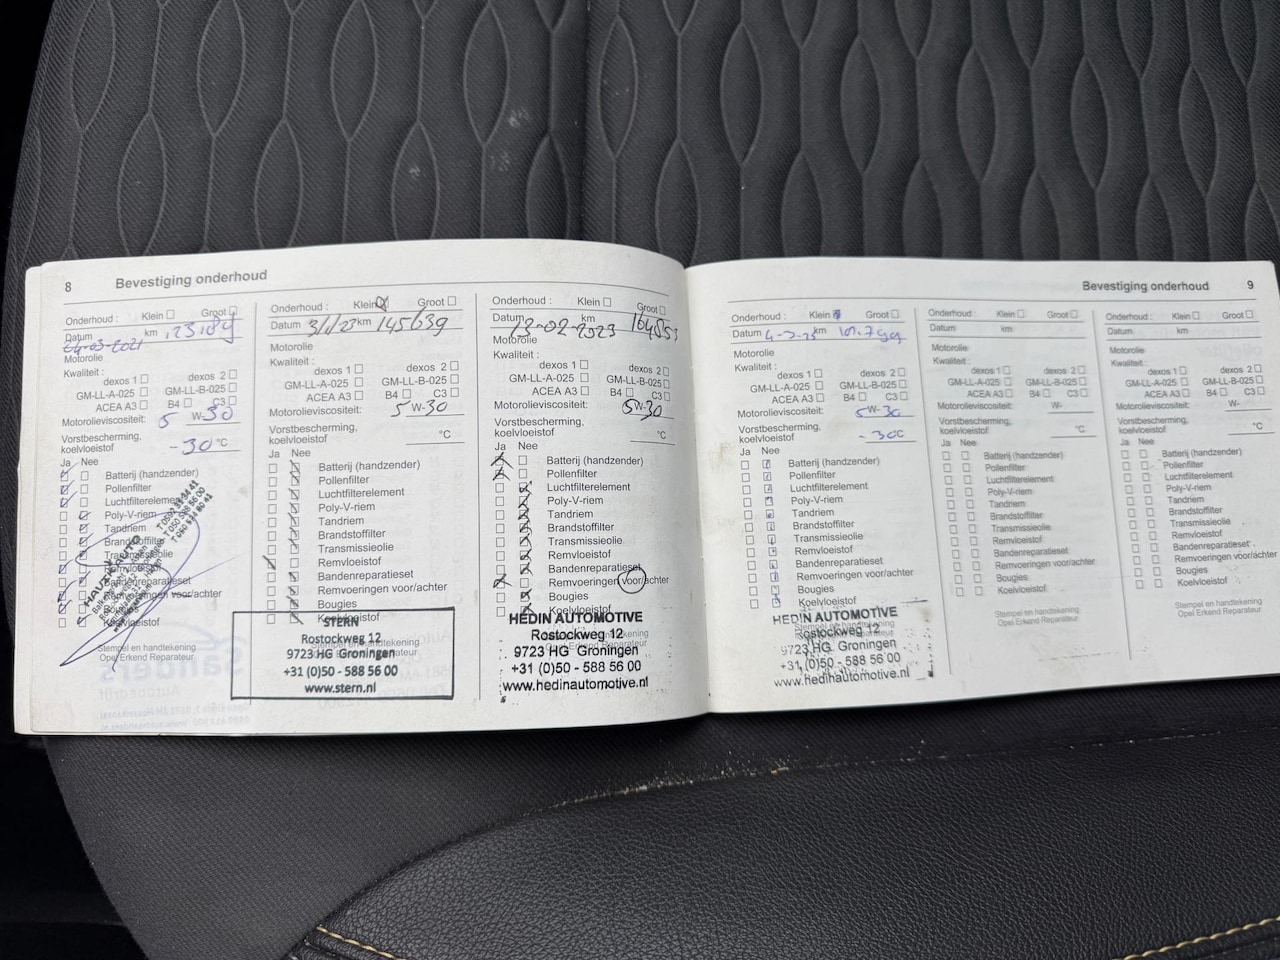 8 Bevestiging onderhoud
Onderhoud : Klein Groot
Datum 04-03-2021 km 123189
Motorolie
Kwaliteit :
dexos 1 dexos 2
GM-LL-A-025 GM-LL-B-025
ACEA A3 B4 C3
Motorolieviscositeit: 5 W-30
Vorstbescherming,
koelvloeistof -30 °C
Ja Nee
Batterij (handzender)
Pollenfilter
Luchtfilterelement
Poly-V-riem
Tandriem
Brandstoffilter
Transmissieolie
Remvloeistof
Bandenreparatieset
Remvoeringen voor/achter
Bougies
Koelvloeistof
Stempel en handtekening
Opel Erkend Reparateur
Onderhoud : Klein Groot
Datum 3/1/23 km 145639
Motorolie
Kwaliteit :
dexos 1 dexos 2
GM-LL-A-025 GM-LL-B-025
ACEA A3 B4 C3
Motorolieviscositeit: 5 W-30
Vorstbescherming,
koelvloeistof °C
Ja Nee
Batterij (handzender)
Pollenfilter
Luchtfilterelement
Poly-V-riem
Tandriem
Brandstoffilter
Transmissieolie
Remvloeistof
Bandenreparatieset
Remvoeringen voor/achter
Bougies
Koelvloeistof
STERN
Rostockweg 12
Stempel en handtekening
9723 HG Groningen
Opel Erkend Reparateur
+31 (0)50 - 588 56 00
www.stern.nl
Onderhoud : Klein Groot
Datum 13-02-2023 km 164853
Motorolie
Kwaliteit :
dexos 1 dexos 2
GM-LL-A-025 GM-LL-B-025
ACEA A3 B4 C3
Motorolieviscositeit: 5W-30
Vorstbescherming,
koelvloeistof °C
Ja Nee
Batterij (handzender)
Pollenfilter
Luchtfilterelement
Poly-V-riem
Tandriem
Brandstoffilter
Transmissieolie
Remvloeistof
Bandenreparatieset
Remvoeringen voor/achter
Bougies
Koelvloeistof
HEDIN AUTOMOTIVE
Rostockweg 12
Stempel en handtekening
9723 HG Groningen
Opel Erkend Reparateur
+31 (0)50 - 588 56 00
www.hedinautomotive.nl
Bevestiging onderhoud 9
Onderhoud : Klein Groot
Datum km
Motorolie
Kwaliteit :
dexos 1 dexos 2
GM-LL-A-025 GM-LL-B-025
ACEA A3 B4 C3
Motorolieviscositeit: 5W-30
Vorstbescherming,
koelvloeistof -30°C
Ja Nee
Batterij (handzender)
Pollenfilter
Luchtfilterelement
Poly-V-riem
Tandriem
Brandstoffilter
Transmissieolie
Remvloeistof
Bandenreparatieset
Remvoeringen voor/achter
Bougies
Koelvloeistof
HEDIN AUTOMOTIVE
Stempel en handtekening
Rostockweg 12
9723 HG Groningen
+31 (0)50 - 588 56 00
www.hedinautomotive.nl
Onderhoud : Klein Groot
Datum km
Motorolie
Kwaliteit :
dexos 1 dexos 2
GM-LL-A-025 GM-LL-B-025
ACEA A3 B4 C3
Motorolieviscositeit: W-
Vorstbescherming,
koelvloeistof °C
Ja Nee
Batterij (handzender)
Pollenfilter
Luchtfilterelement
Poly-V-riem
Tandriem
Brandstoffilter
Transmissieolie
Remvloeistof
Bandenreparatieset
Remvoeringen voor/achter
Bougies
Koelvloeistof
Stempel en handtekening
Opel Erkend Reparateur
Onderhoud : Klein Groot
Datum km
Motorolie
Kwaliteit :
dexos 1 dexos 2
GM-LL-A-025 GM-LL-B-025
ACEA A3 B4 C3
Motorolieviscositeit: W-
Vorstbescherming,
koelvloeistof °C
Ja Nee
Batterij (handzender)
Pollenfilter
Luchtfilterelement
Poly-V-riem
Tandriem
Brandstoffilter
Transmissieolie
Remvloeistof
Bandenreparatieset
Remvoeringen voor/achter
Bougies
Koelvloeistof
Stempel en handtekening
Opel Erkend Reparateur